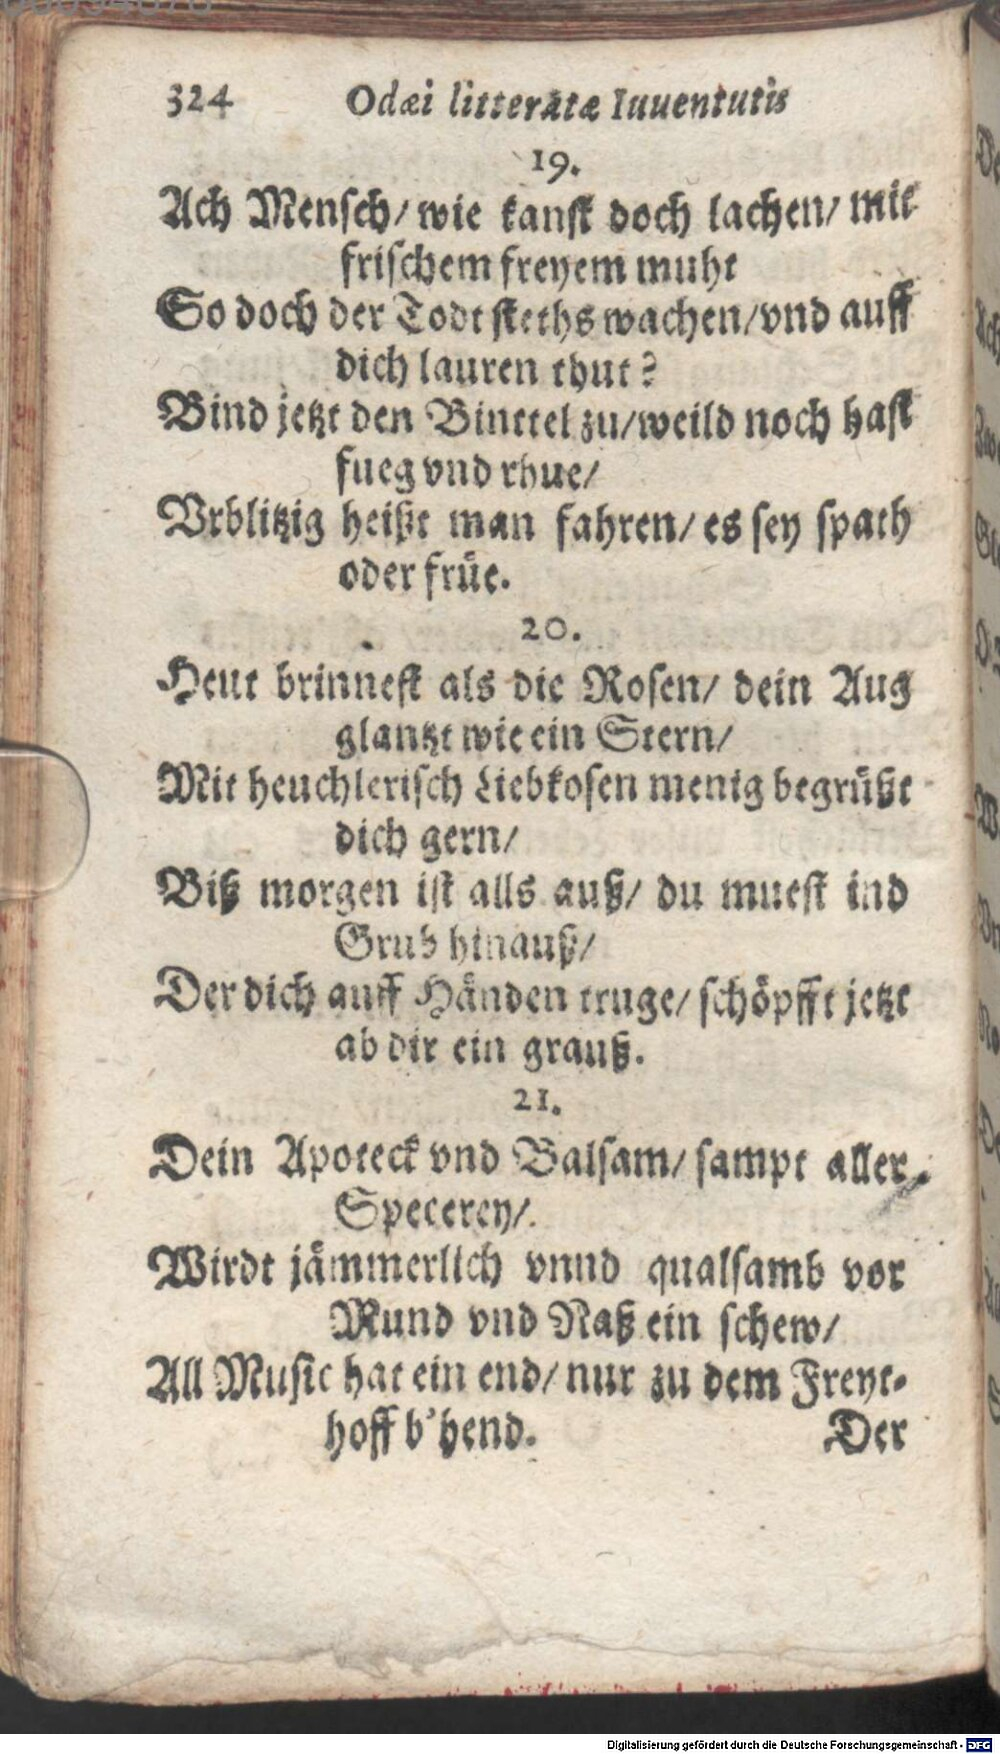 324 Odæi litterātæ Iuuentutis
19.
Ach Mensch/ wie kanst doch lachen/ mit
frischem freyem muht
So doch der Todt steths wachen/vnd auff
dich lauren thut?
Bind jetzt den Binttel zu/weild noch hast
fueg vnd rhue/
Vrblitzig heißt man fahren/ es sey spath
oder früe.
20.
Heut brinnest als die Rosen/ dein Aug
glantzt wie ein Stern/
Mit heuchlerisch Liebkosen menig begrüßt
dich gern/
Biß morgen ist alls auß/ du muest ind
Grub hinauß/
Der dich auff Händen truge/ schöpfft jetzt
ab dir ein grauß.
21.
Dein Apoteck vnd Balsam/ sampt aller
Specerey/.
Wirdt jämmerlich vnnd qualsamb vor
Mund vnd Naß ein schew/
All Music hat ein end/ nur zu dem Freyt-
hoff b'hend. Der
Digitalisierung gefördert durch die Deutsche Forschungsgemeinschaft - DFG